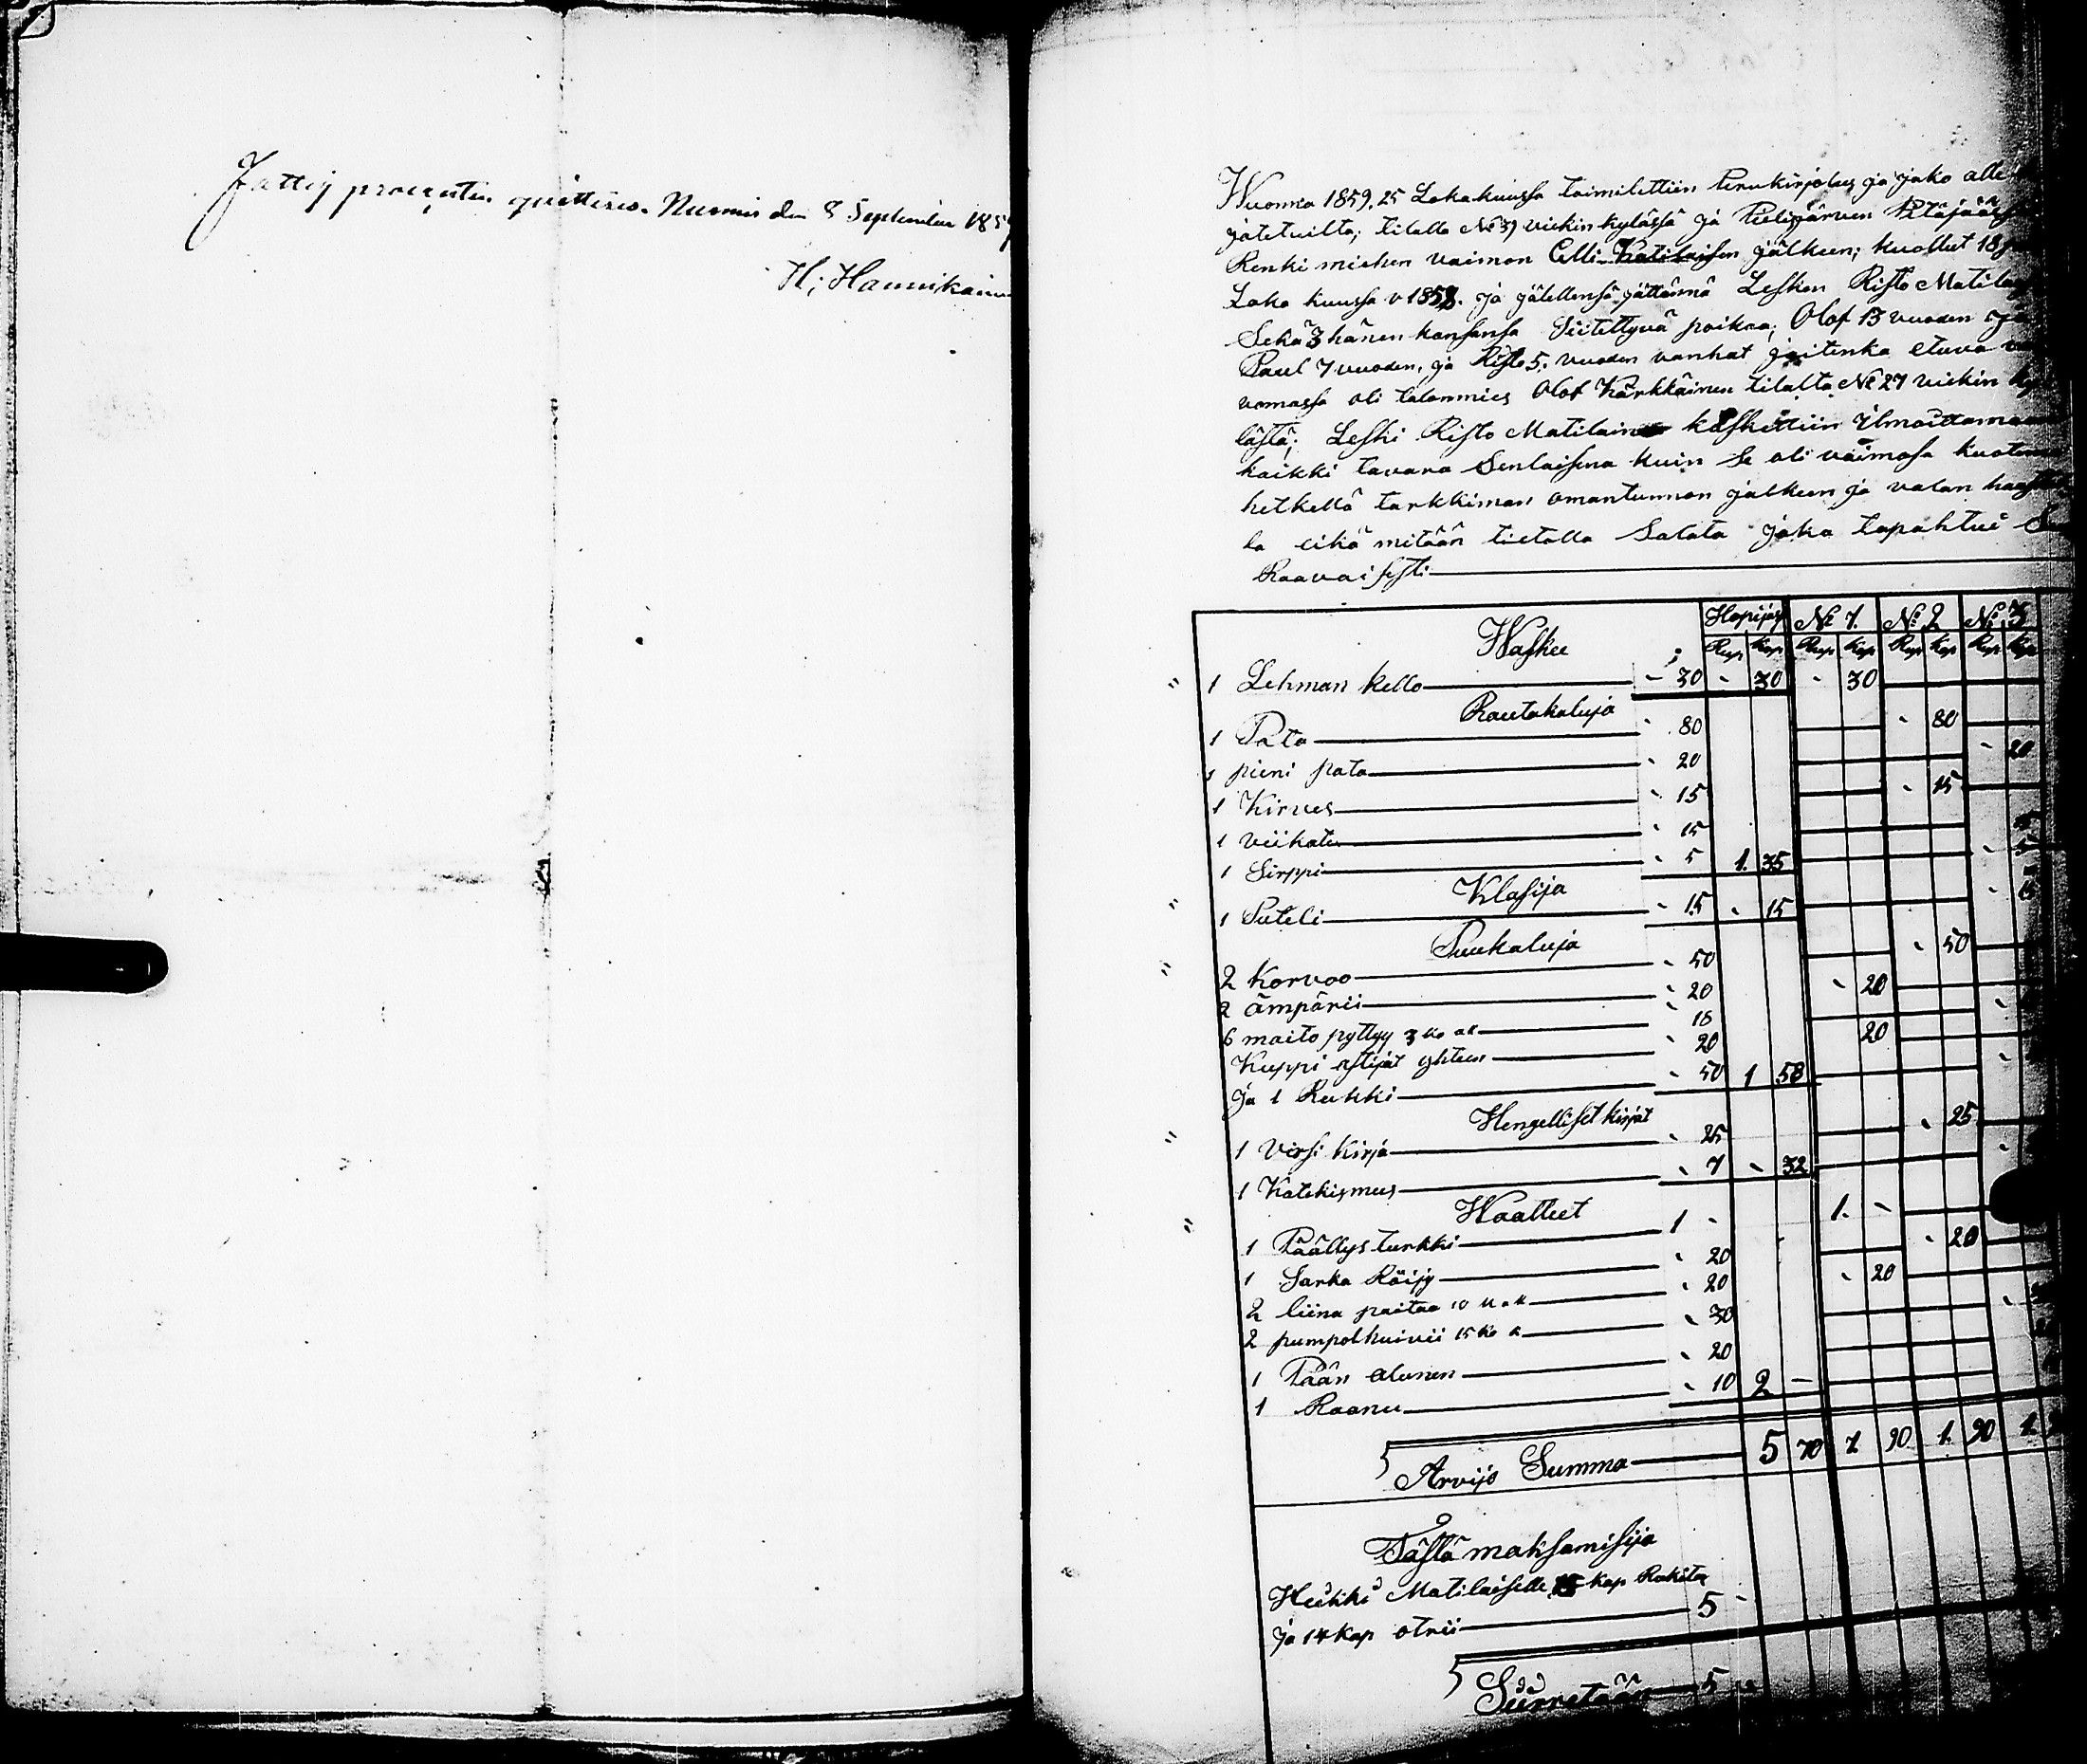 Fattig procenten qvitteras. Nurmis den 8 September 1859
H; Hannikainen
Wuonna 1859, 25 Lokakuussa toimitettiin Perukirjotus ja jako alle
jätetuilta; tilalla No 37 viekin kylässä ja Pielisjärven Pitäjäässä
Renki miehen vaimon Elli Katilaisen jälkeen; kuollut 18
Loka kuussa v 1858. ja jälellensä jättännä Lesken Risto Matilai
Sekä 3 hänen kansansa Siitettyvä poikaa; Olof 13 vuoden ja
Paul 7 vuoden, ja Risto 5. vuoden vanhat joitenka etuva
vomassa oli talonmies Olof Kärkkäinen tilalta No 27 viekin ky
lästä; Leski Risto Matilainen käskettiin Ilmoittamaan
kaikki tavara Senlaisena kuin Se oli vaimosa kuoteman
hetkellä tarkkiman omantunnon jalkeen ja valan haastol
la eikä mitään tietalla Salata joka tapahtui Se
Raavaisesti
Hopijas No 1. No 2 No 3
Waskee Rup Kop Rup Kop Rup Kop Rup Kop
1 Lehman kello - 30 - 30 - 30
Rautakaluja
1 Pata - 80 - 80
1 pieni pata - 20 - 20
1 Kirves - 15 - 15
1 viikate - 15
1 Sirppi - 5 1. 35 - 5
Klasija
1 Puteli - 15 - 15 - 15
Puukaluja
2 Korvoo - 50 - 50
2 ämpärii - 20 - 20
6 maito pyttyy 3 ko al - 18
Kuppi astijat yhteen - 20 20
ja 1 Rukki - 50 1 58
Hengelliset kirjat
1 Virsi kirja - 25 - 25
1 Katekismus - 7 - 32
Waatteet
1 Päällys turkki 1 - 1. -
1 Sarka Röijy - 20 - 20
2 liina paitaa 10 k al - 20 - 20
2 pumpolhuivii 15 ko a - 30
1 Pään alunen - 20
1 Raanu - 10 2 -
Arvijo Summa 5 70 1. 90 1. 90 1.
Tästä maksamisija
Heikki Matilaiselle 15 kap Rukita
ja 14 kap otrii 5 -
Siirretään 5